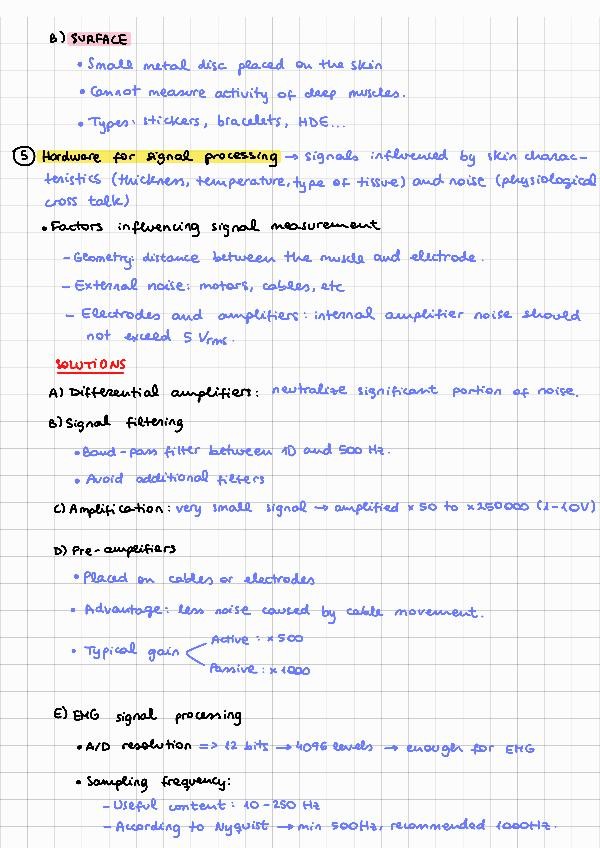 B) SURFACE
• Small metal disc placed on the skin
• Cannot measure activity of deep muscles.
• Types: stickers, bracelets, HDE...
⑤ Hardware for signal processing → signals influenced by skin charac-
teristics (thickness, temperature, type of tissue) and noise (physiological
cross talk)
• Factors influencing signal measurement
- Geometry: distance between the muscle and electrode.
- External noise: motors, cables, etc
- Electrodes and amplifiers: internal amplifier noise should
not exceed 5 Vrms.
SOLUTIONS
A) Differential amplifiers: neutralize significant portion of noise.
B) Signal filtering
• Band-pass filter between 10 and 500 Hz.
• Avoid additional filters
C) Amplification: very small signal → amplified x50 to x250000 (1-10V)
D) Pre-amplifiers
• Placed on cables or electrodes
• Advantage: less noise caused by cable movement.
Active: x500
• Typical gain
Passive: x1000
E) EMG signal processing
• A/D resolution => 12 bits → 4096 levels → enough for EMG
• Sampling frequency:
- Useful content: 10-250 Hz
- According to Nyquist → min 500Hz, recommended 1000Hz.